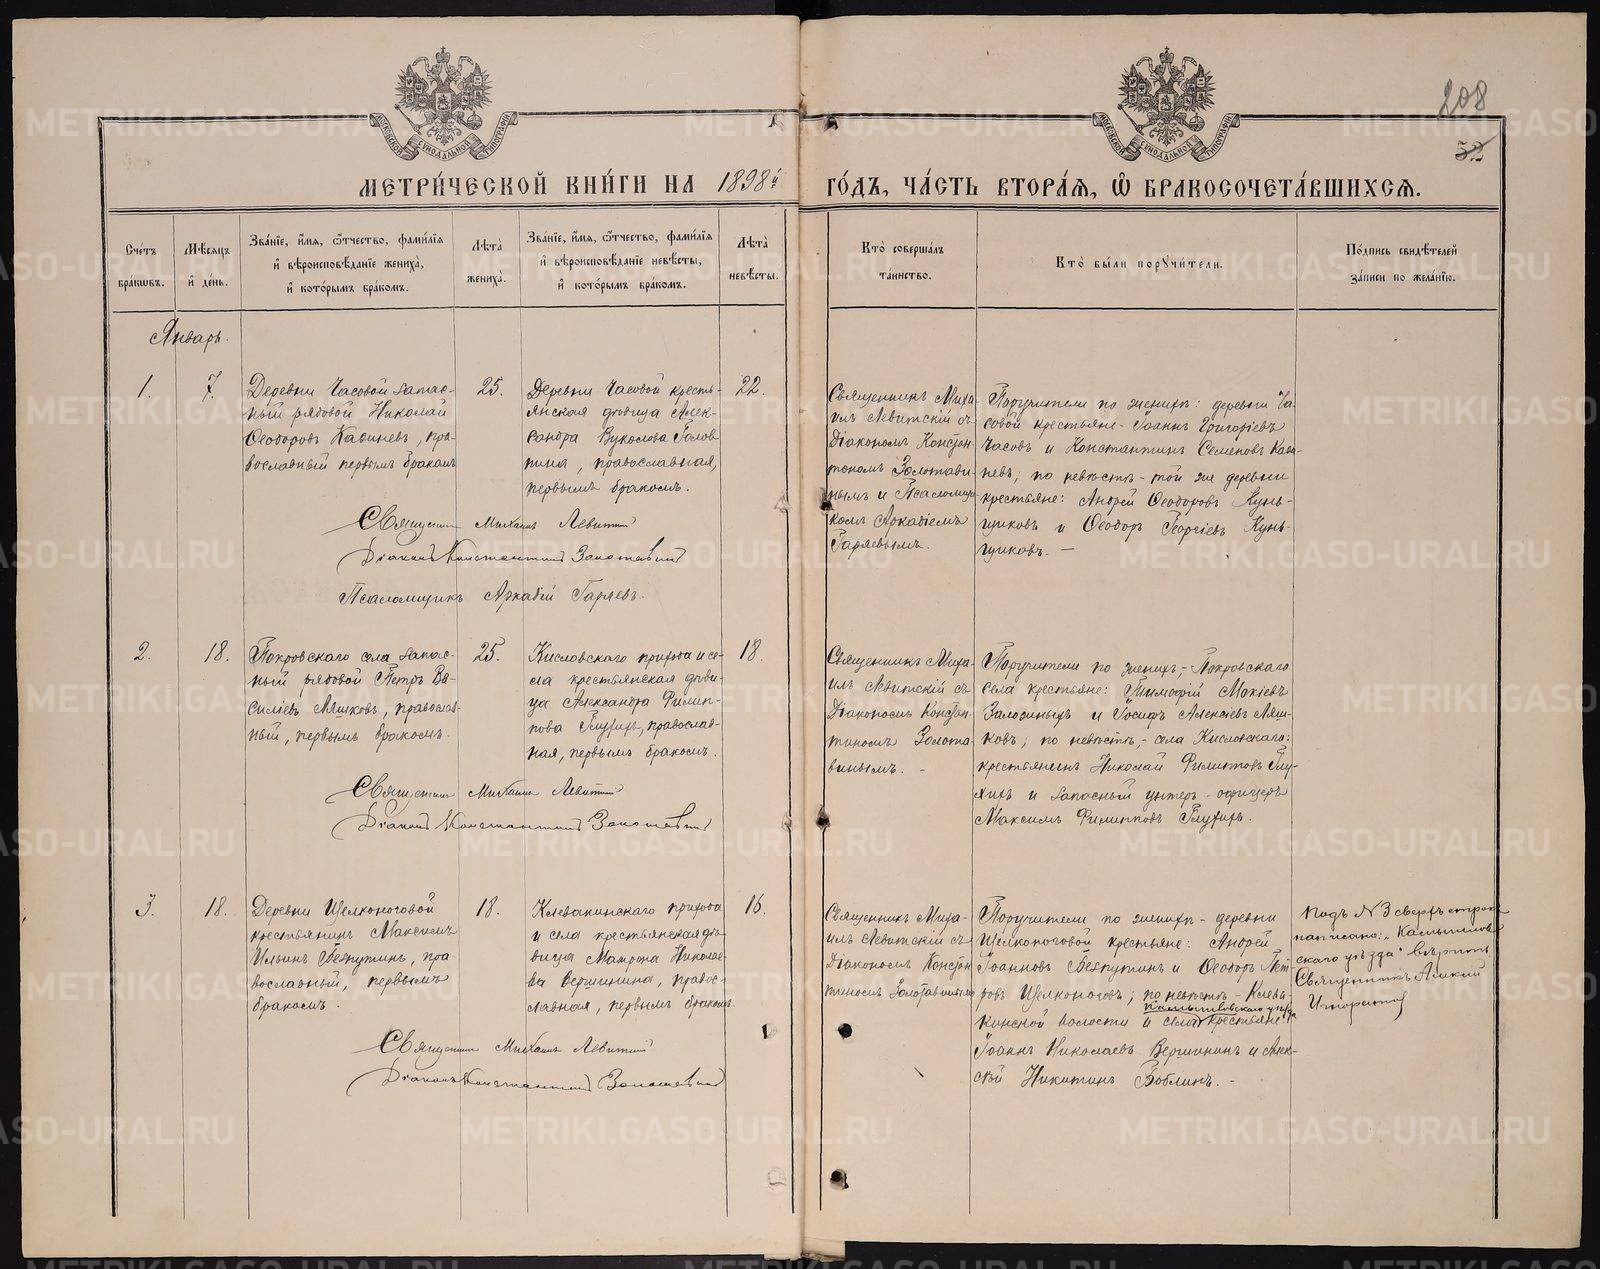 208
52
МЕТРИ́ЧЕСКОЙ КНИ́ГИ НА 1898й ГО́ДЪ, ЧА́СТЬ ВТОРА́Я, Ѿ БРАКОСОЧЕТА́ВШИХСЯ.
Сче́тъ бра́кѡвъ.
Мѣ́сяцъ и҆ де́нь.
Зва́нїе, и҆́мя, ѻ҆́тчество, фами́лїя
и҆ вѣроисповѣ́данїе жениха̀,
и҆ кото́рымъ бра́комъ.
Лѣта̀ жениха̀.
Зва́нїе, и҆́мя, ѻ҆́тчество, фами́лїя
и҆ вѣроисповѣ́данїе невѣ́сты,
и҆ кото́рымъ бра́комъ.
Лѣта̀ невѣ́сты.
Кто̀ соверша́лъ
та́инство.
Кто̀ бы́ли порꙋчи́тели.
По́дпись свидѣ́телей
за́писи по жела́нїю.
Январь.
1.
7.
Деревни Часовой запас-
ный рядовой Николай
Ѳеодоровъ Кабиневъ, пра-
вославный первымъ бракомъ
25.
Деревни Часовой кресть-
янская дѣвица Алек-
сандра Вуколова Голов
тина, православная,
первымъ бракомъ.
22.
Священникъ Миха-
илъ Левитскій съ
Діакономъ Констан-
тиномъ Золотави-
нымъ и Псаломщи-
комъ Аркадіемъ
Гаряевымъ.
Поручители по женихѣ: деревни Ча-
совой крестьяне - Іоаннъ Григоріевъ
Часовъ и Константинъ Семеновъ Каби-
невъ; по невѣстѣ - той же деревни
крестьяне: Андрей Ѳеодоровъ Кунь-
щиковъ и Ѳеодоръ Георгіевъ Кунь-
щиковъ. —
Священникъ Михаилъ Левитскій
Діаконъ Константинъ Золотавинъ
Псаломщикъ Аркадій Гаряевъ.
2.
18.
Покровскаго села запас-
ный рядовой Петръ Ва-
силіевъ Ляшковъ, православ-
ный, первымъ бракомъ.
25.
Кисловскаго прихода и се-
ла крестьянская дѣви-
ца Александра Филип-
пова Глухихъ, православ-
ная, первымъ бракомъ.
18.
Священникъ Миха-
илъ Левитскій съ
Діакономъ Констан-
тиномъ Золота-
винымъ. -
Поручители по женихѣ, - Покровскаго
села крестьяне: Тимофей Мокіевъ
Заложныхъ и Іосифъ Алексіевъ Ляш-
ковъ; по невѣстѣ, - села Кисловскаго:
крестьянинъ Николай Филиповъ Глу-
хихъ и запасный унтеръ-офицеръ
Максимъ Филипповъ Глухихъ.
Священникъ Михаилъ Левитскій
Діаконъ Константинъ Золотавинъ
3.
18.
Деревни Щелконоговой
крестьянинъ Максимъ
Ильинъ Безпутинъ, пра-
вославный, первымъ
бракомъ.
18.
Клевакинскаго прихода
и села крестьянская дѣ-
вица Матрона Николае-
ва Вершинина, правос-
лавная, первымъ бракомъ.
16.
Священникъ Миха-
илъ Левитскій съ
Діакономъ Констан
тиномъ Золотавинымъ
Поручители по женихѣ - деревни
Щелконоговой крестьяне: Андрей
Іоанновъ Безпутинъ и Ѳеодоръ Пет-
ровъ Щелконоговъ; по невѣстѣ - Клева-
Камышловскаго уѣзда
кинской волости и села крестьяне:
Іоаннъ Николаевъ Вершининъ и Алек-
сѣй Никитинъ Бобинъ. -
Подъ №3 сверхъ строки
написано: "Камышлов-
скаго уѣзда" вѣрить
Священникъ Алексій
Священникъ Михаилъ Левитскій
Діаконъ Константинъ Золотавинъ